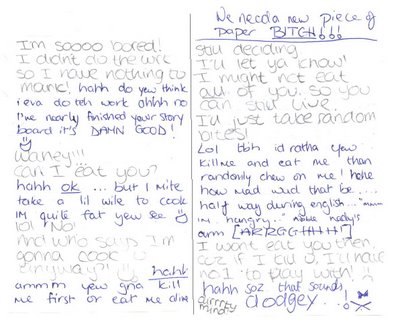 Im soooo bored!
I didnt do the work
so I have nothing to
hahh do yew think
i eva do teh work ohhh no
I've nearly finished your story
board it's DAMN GOOD!
can I eat you?
hahh ok ... but I mite
take a lil wile to cook
im quite fat yew see
lol No!
And who said Im
gonna cook U
anyway?!
hahh
ammm yew gna kill
me first or eat me
We need a new piece of
paper BITCH!!!
still deciding
I'll let ya know!
I might not eat
all of you so you
can still live.
I'll just take random
bites!
Lol tbh id ratha yew
kill me and eat me then
randomly chew on me! hehe
how mad wud that be....
half way during english... "mum
im hungry.."
arm [ARRGGHHH!]
I want eat you then
coz if I kill U, I'll have
no.1 to play with!
hahh soz that sounds
dirrrty
mindy
dodgey..!